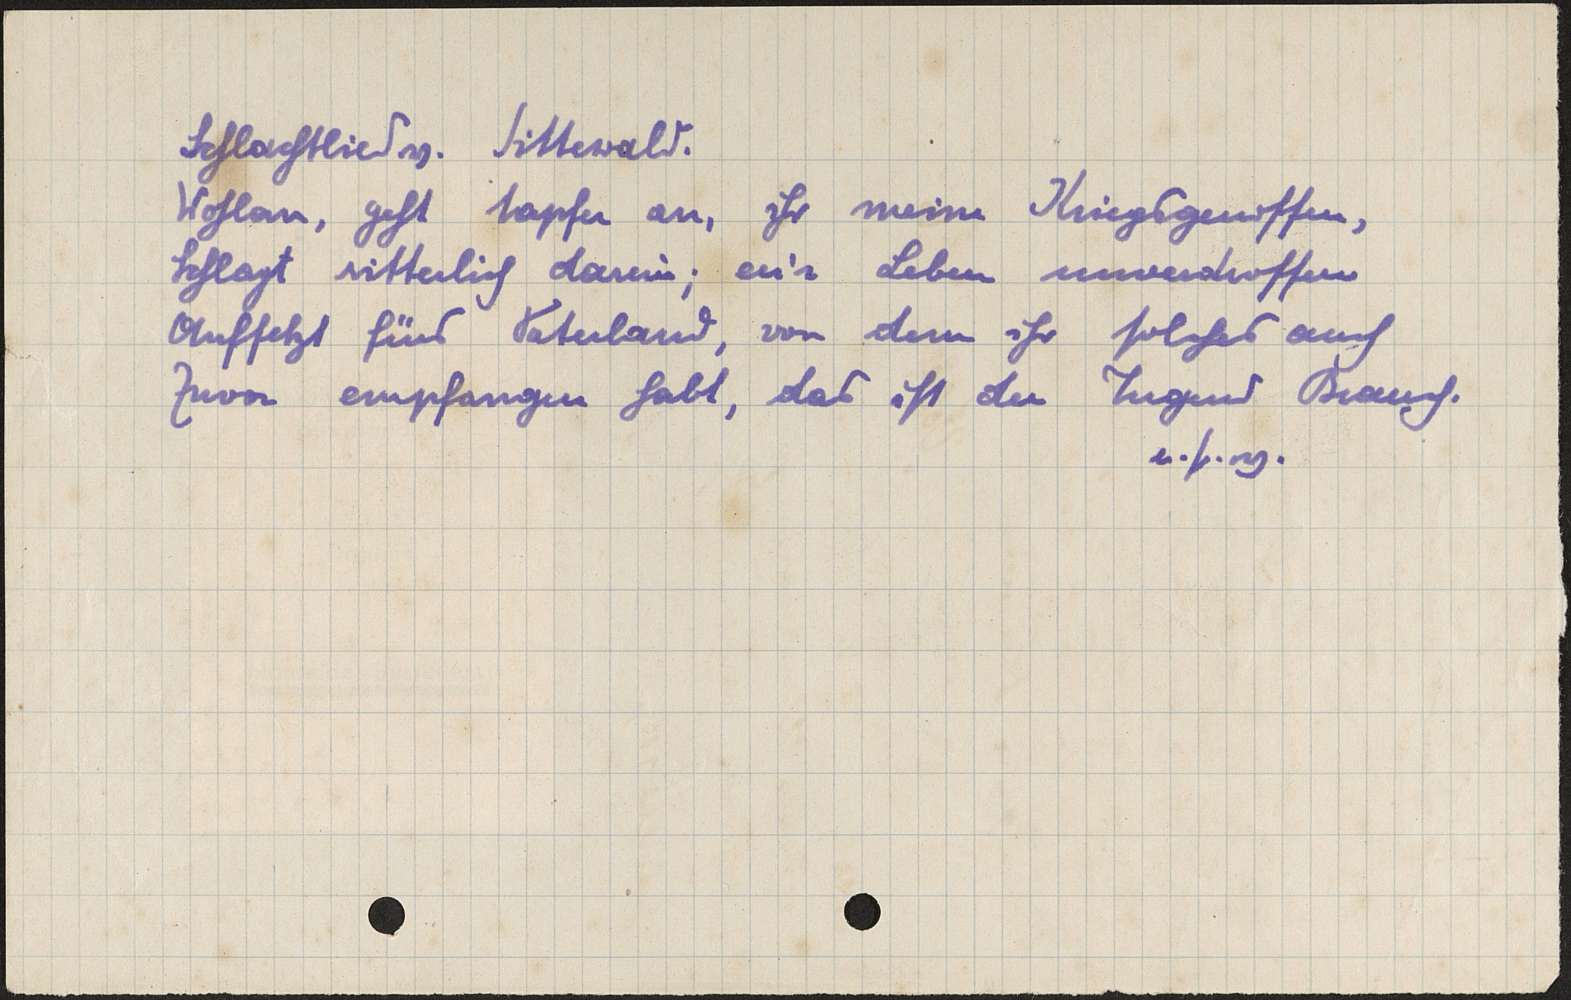 Schlachtlied v. Sittewald.
Wohlan, geht tapfer an, ihr meine Kriegsgenossen,
Schlagt ritterlich darein; eu'r Leben unverdrossen
Aufsetzt fürs Vaterland, von dem ihr solches auch
Zuvor empfangen habt, das ist der Tugend Brauch.
u. s. w.